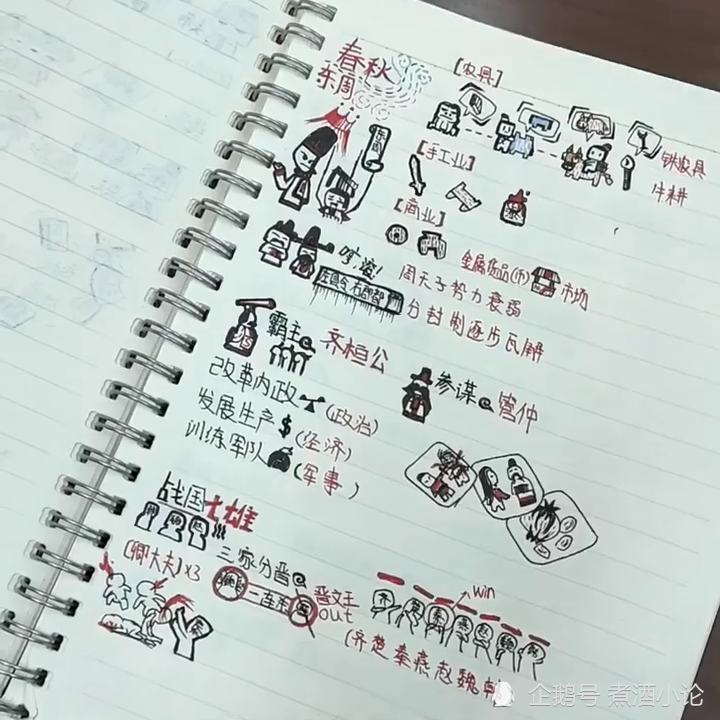 春秋
东周
[农具]
铁农具
牛耕
[手工业]
[商业]
金属货品(币) 市场
周天子势力衰弱
分封制逐步瓦解
霸主 齐桓公
参谋 管仲
改革内政 (政治)
发展生产 $ (经济)
训练军队 (军事)
战国七雄
三家分晋
[卿大夫]x3
二连杀
晋文王
out
win
(齐楚秦燕赵魏韩
企鹅号 煮酒小论